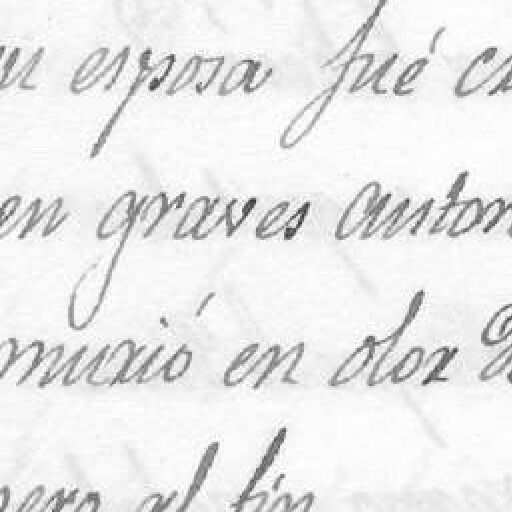 su esposa fué
en graves autor
murió en olor
pero al fin